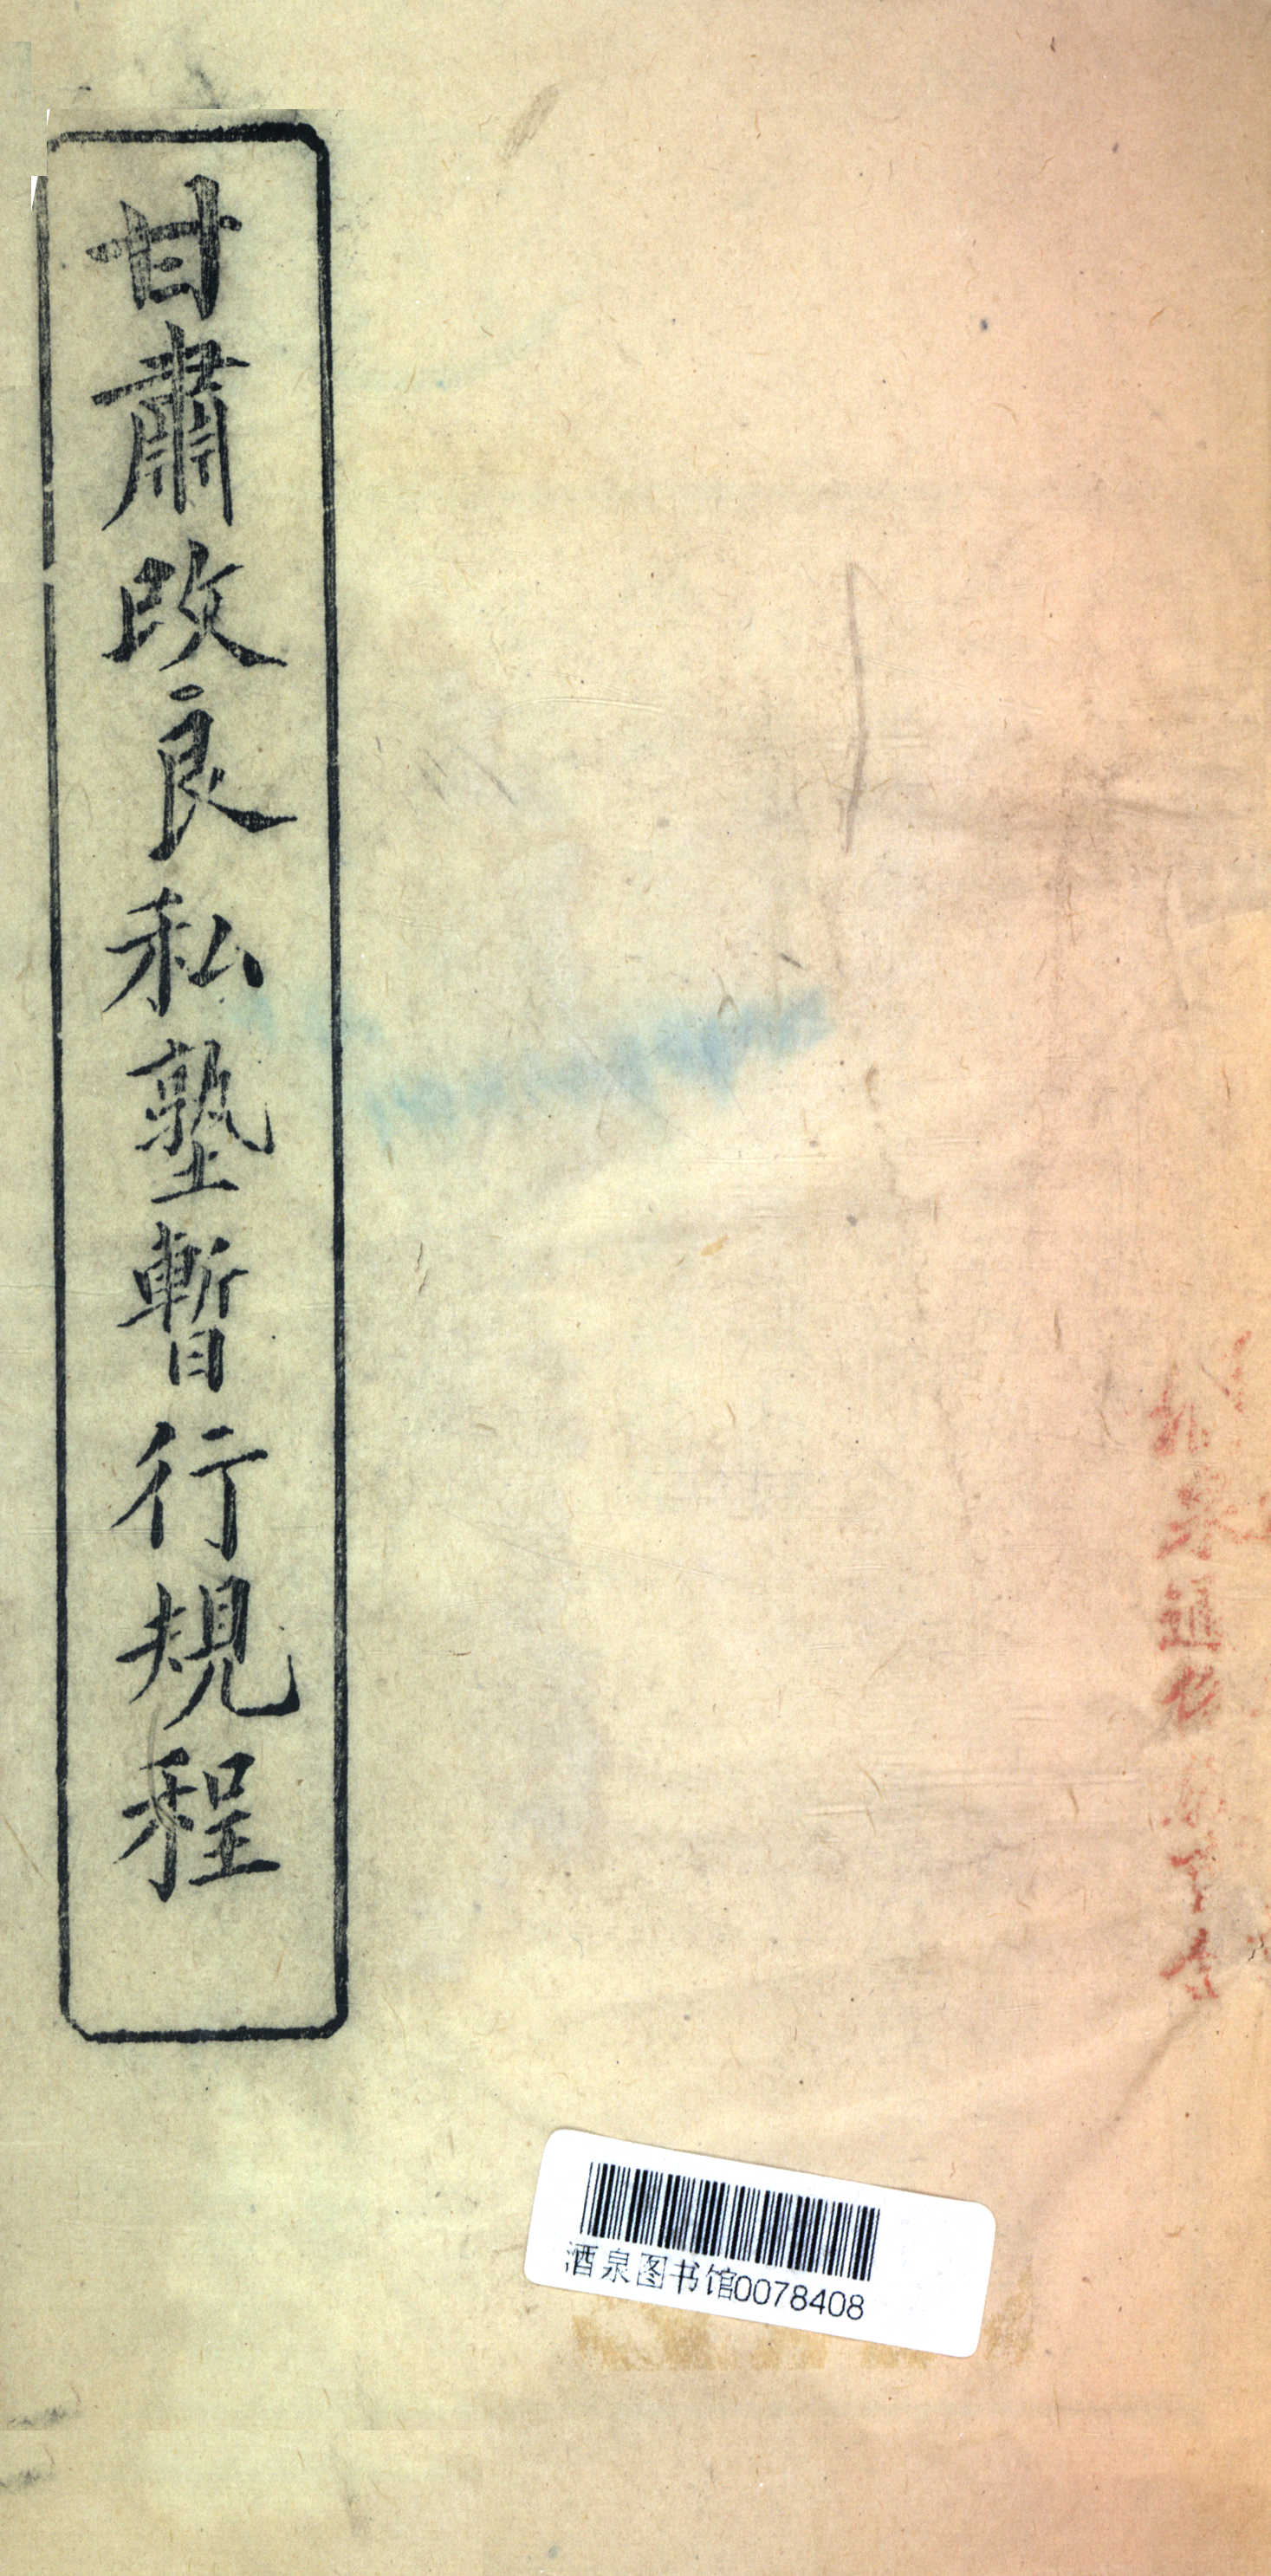 甘肅改良私塾暫行規程
酒泉图书馆0078408